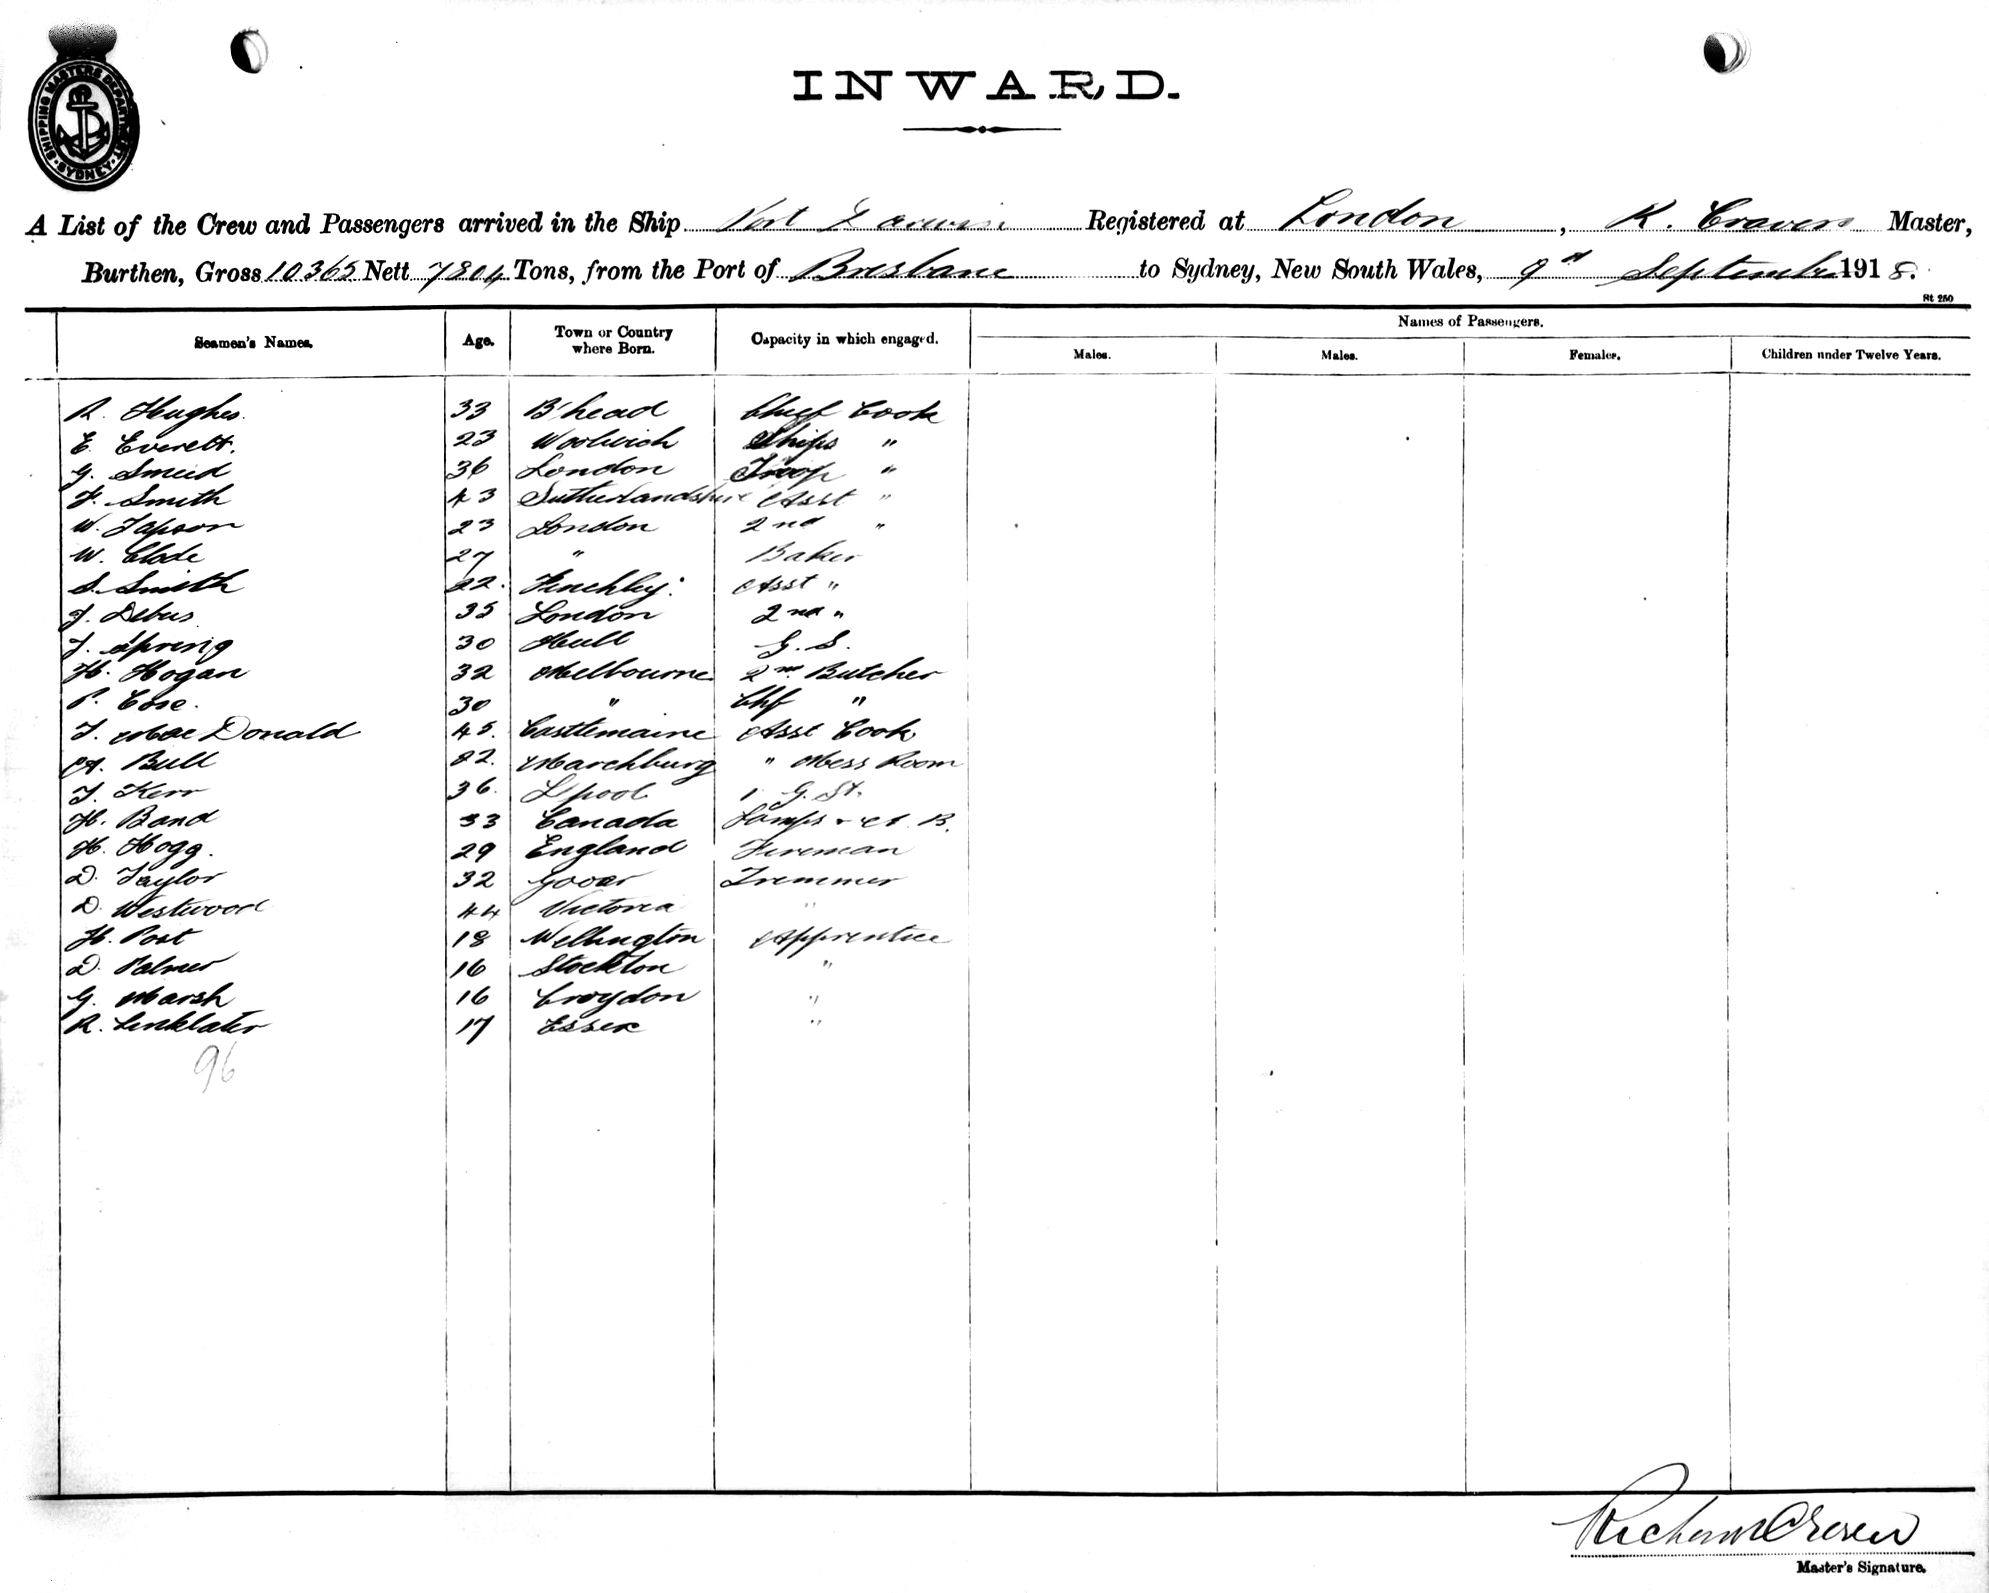 SHIPPING MASTERS DEPARTMENT SYDNEY
INWARD.
A List of the Crew and Passengers arrived in the Ship Port Darwin Registered at London, R. Craven Master,
Burthen, Gross 10365 Nett 7804 Tons, from the Port of Brisbane to Sydney, New South Wales, 9th September 1918.
St 250
Seamen's Names. Age. Town or Country where Born. Capacity in which engaged. Names of Passengers.
Males. Males. Females. Children under Twelve Years.
R. Hughes. 33 B'head Chief Cook
E. Everett. 23 Woolwich Ships "
G. Smeid 36 London Troop "
F. Smith 43 Sutherlandshire Asst "
W. Tapson 23 London 2nd "
W. Clode 27 " Baker
S. Smith 22. Finchley. Asst "
J. Debus 35 London 2nd "
J. Spring 30 Hull G. S.
H. Hogan 32 Melbourne 2nd Butcher
P. Cose. 30 " Chf "
J. MacDonald 45. Castlemaine Asst Cook
A. Bull 22. Marchburg " Mess Room
J. Kerr 36. L'pool G. St.
H. Band 33 Canada Lamps & A. B.
H. Hogg. 29 England Fireman
D. Taylor 32 Trimmer
D. Westwood 44 Victoria "
H. Post 18 Wellington Apprentice
D. Palmer 16 Stockton "
G. Marsh 16 Croydon "
R. Linklater 17 Essex "
96
Richard Craven
Master's Signature.